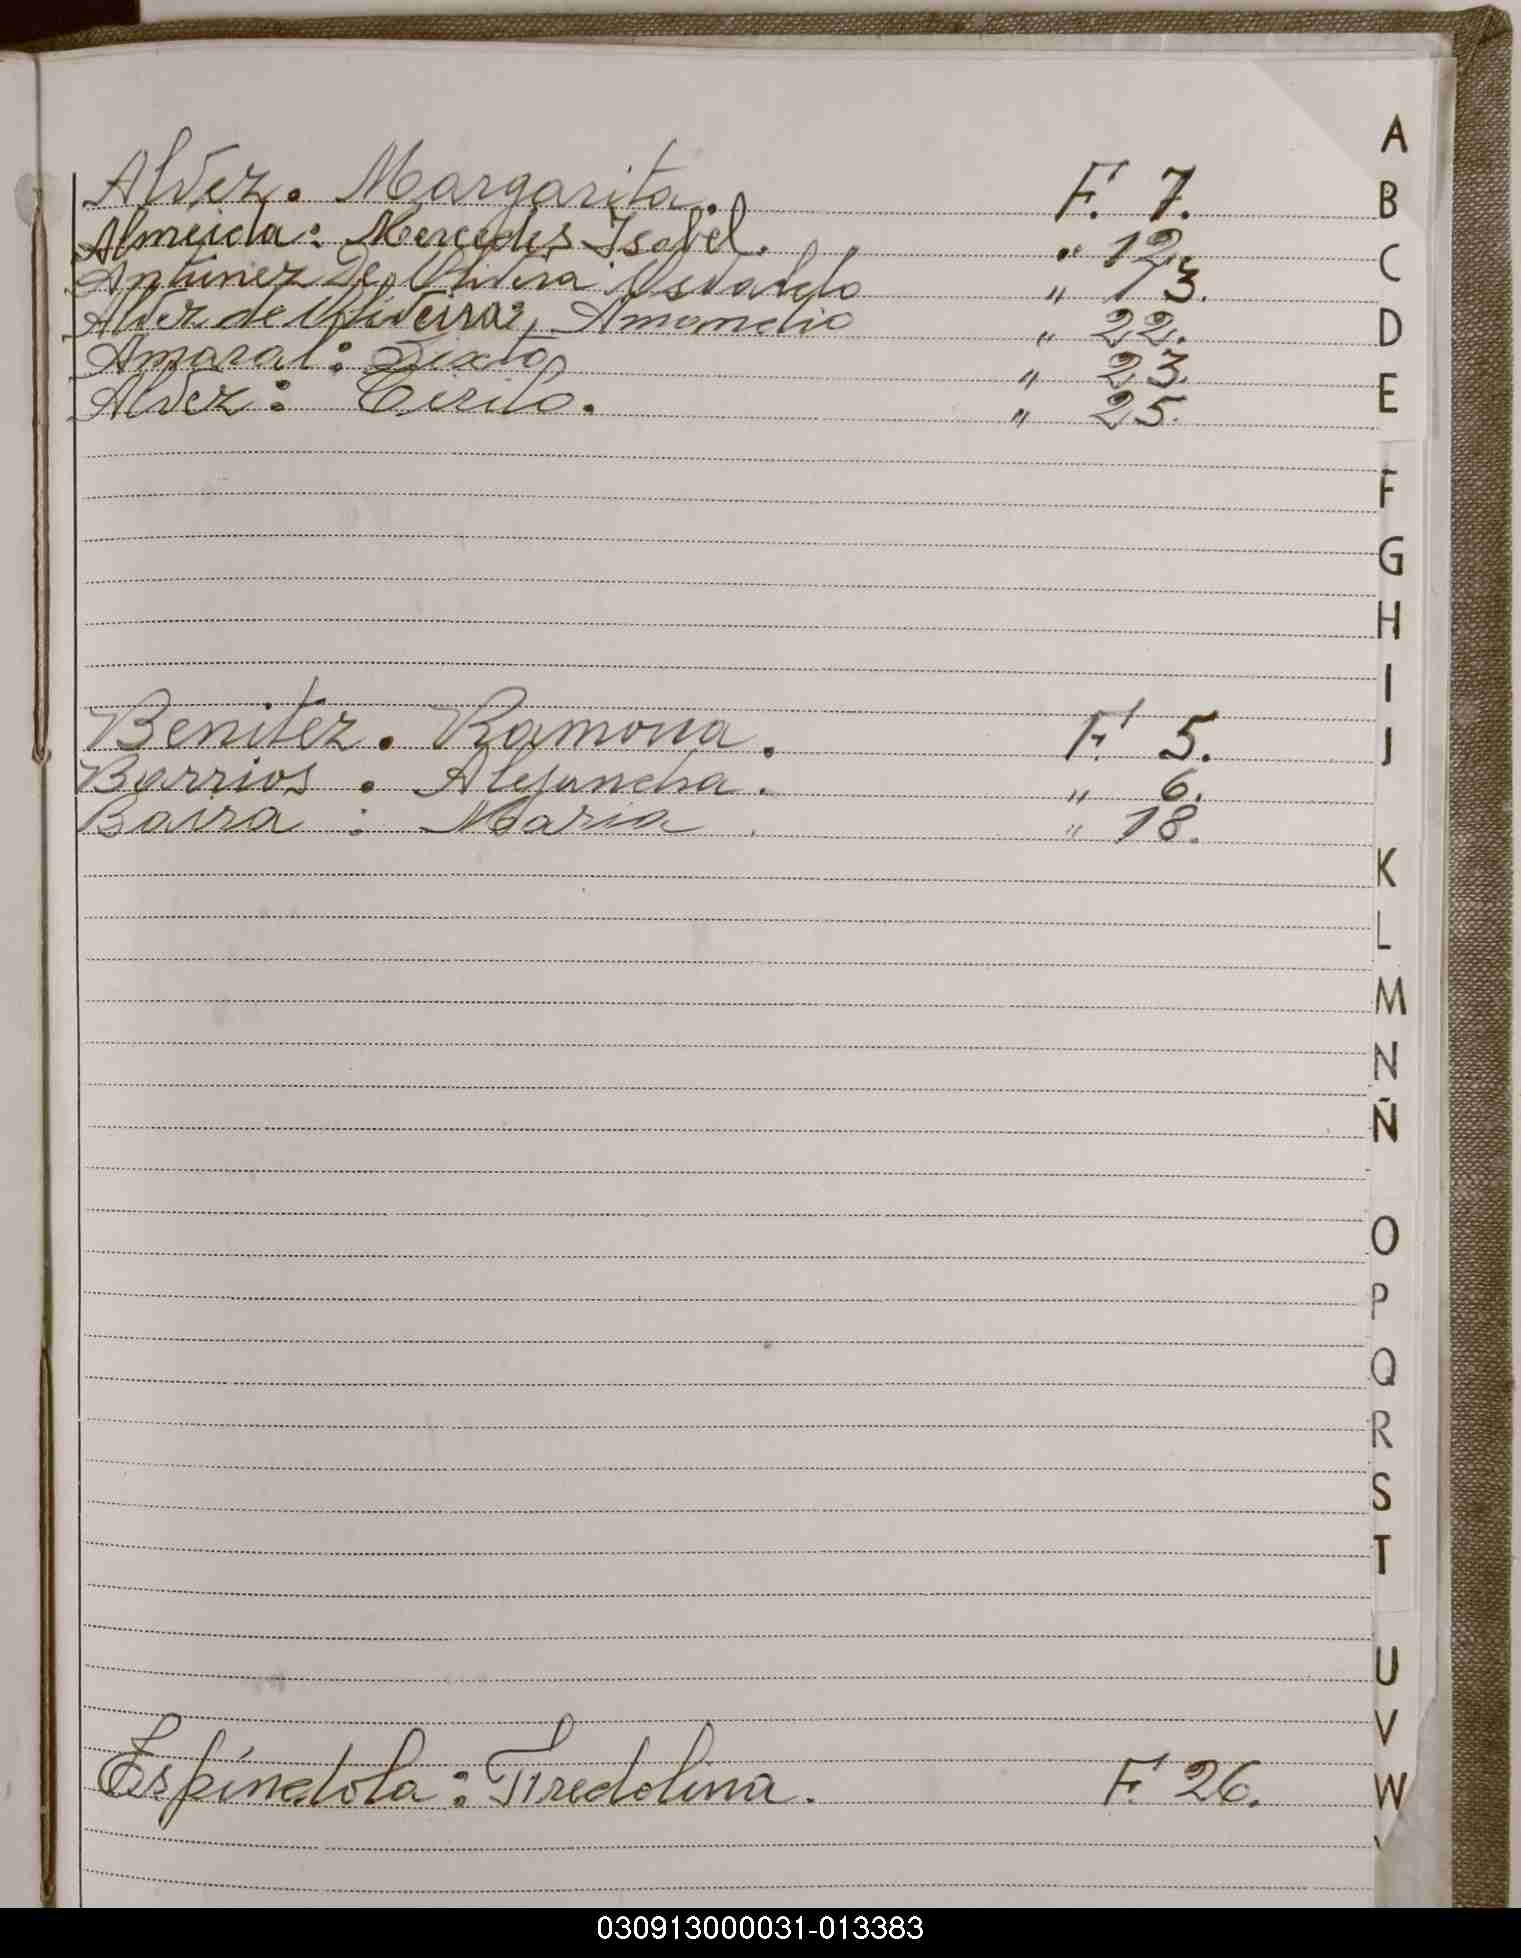 Alvez. Margarita. F. 7.
Almeida: Mercedes Isabel. " 12.
Antunez De Olivera Osvaldo " 13.
Alvez de Oliveira: Amomelio " 22.
Amaral: Sixto " 23.
Alvez: Cirilo. " 25.
Benitez. Ramona. F. 5.
Barrios. Alejandra. " 6.
Baira: Maria. " 18.
Espíndola: Tiredolina. F. 26.
A
B
C
D
E
F
G
H
I
J
K
L
M
N
Ñ
O
P
Q
R
S
T
U
V
W
030913000031-013383